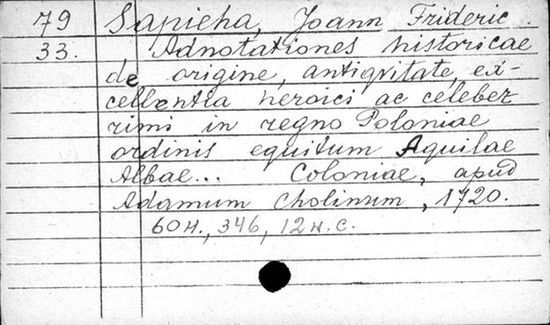 79 Sapieha, Joann Frideric.
33. Adnotationes historicae
de origine, antiqvitate, ex-
cellentia heroici ac celeber
rimi in regno Poloniae
ordinis equitum Aquilae
Albae... Coloniae, apud
Adamum Cholinum, 1720.
60н., 346, 12н.с.